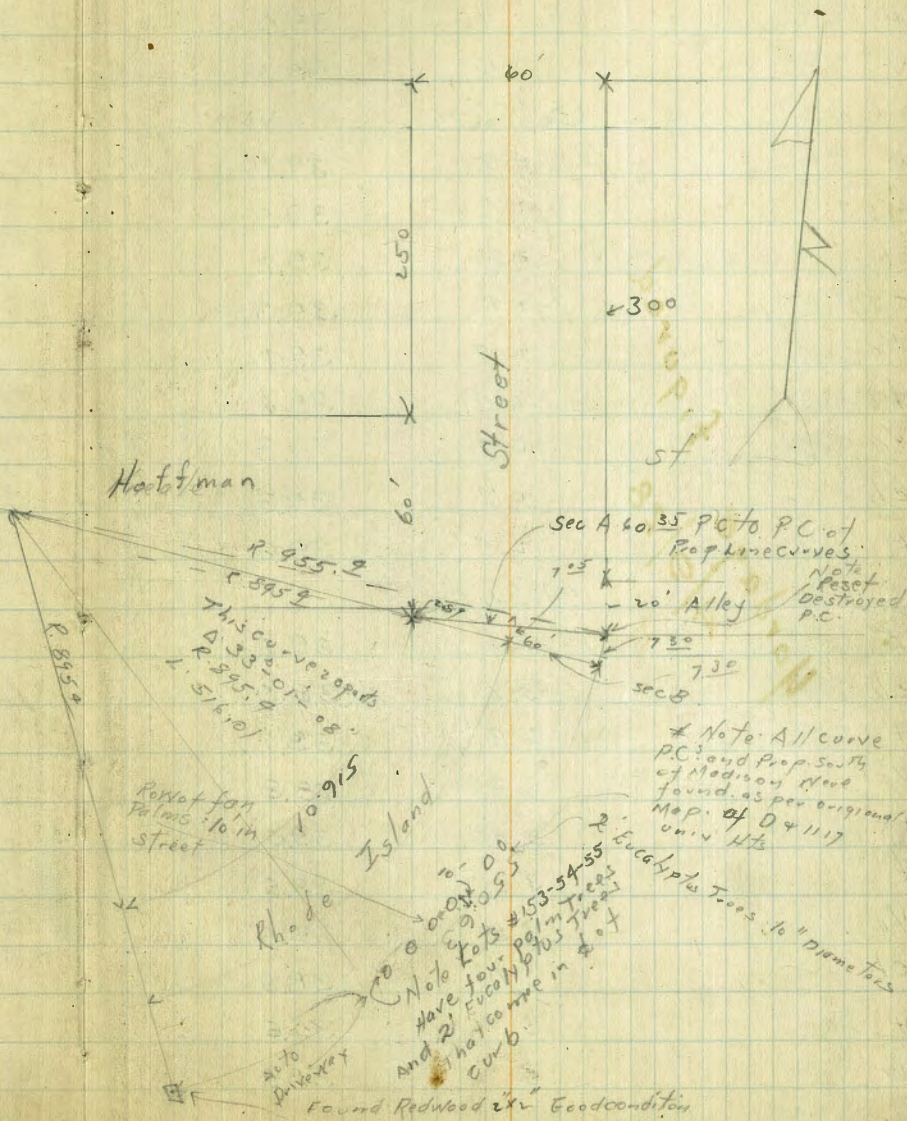 60'
250
300
Street
N
St
Hoffman
60'
Sec A 60.35 P.C to P.C. of
Prop Line Curves
R. 955.9
R 895.9
7.05
Note
Reset
Destroyed
P.C.
20' Alley
60'
7 30
7 30
Sec B
R. 895.9
This curve 20 parts
Δ 33°-01'-08"
R. 895.9
L. 516.01
* Note. All curve
P.C.s and Prop. South
of Madison Were
found as per origional
Map. of D & 1117
Univ Hts
Row of fan
Palms 10' in
Street
10.915
Rhode Island
10'
2' Eucalyptus Trees 10" Diameters
Note Lots #153-54-55
Have four palm Trees
And 2' Eucalyptus Trees
That come in
curb.
Auto
Driveway
Found Redwood 2"x2" Good conditon